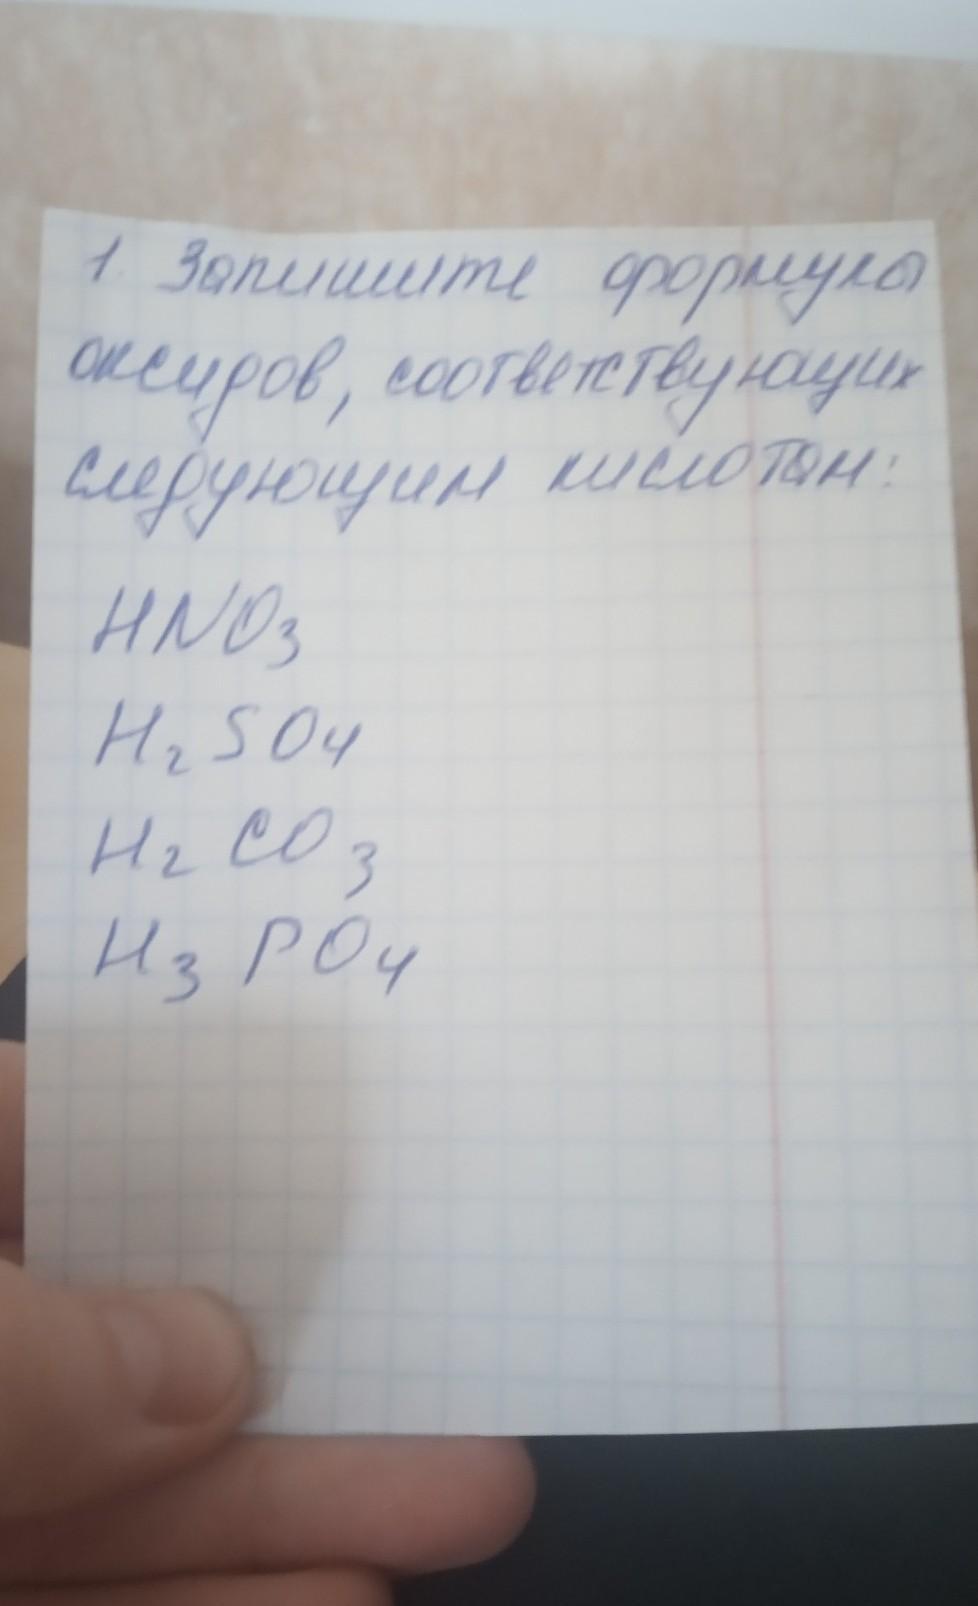 1. Запишите формулы
оксидов, соответствующих
следующим кислотам:
HNO₃
H₂SO₄
H₂CO₃
H₃PO₄